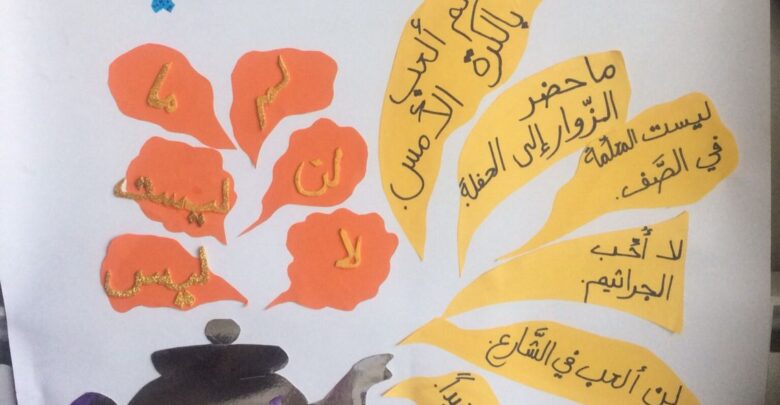 ما
لم
لن
ليست
لا
ليس
لم ألعب
بالكرة الأمس.
ما حضر
الزّوار إلى الحفلة.
ليست المعلّمة
في الصَّف.
لا أُحّب
الجراثيم.
لن ألعب في الشَّارع.